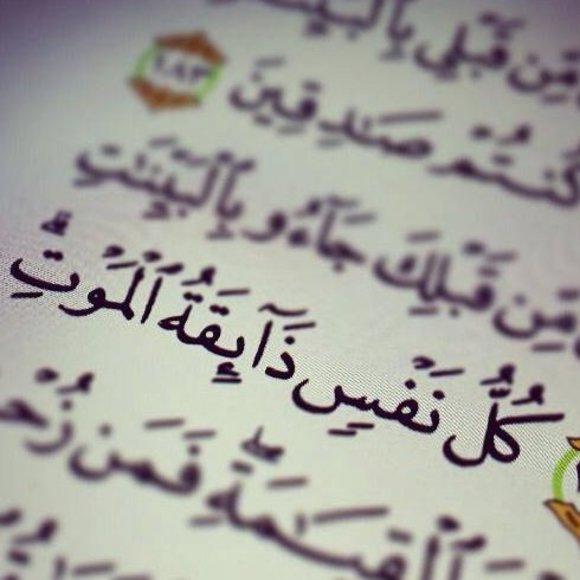 مِّن قَبْلِى بِٱلْبَيِّنَـ
كُنتُمْ صَـٰدِقِينَ ١٨٣
مِّن قَبْلِكَ جَآءُو بِٱلْبَيِّنَـٰتِ
كُلُّ نَفْسٍ ذَآئِقَةُ ٱلْمَوْتِ ۗ
ٱلْقِيَـٰمَةِ ۖ فَمَن زُحْ